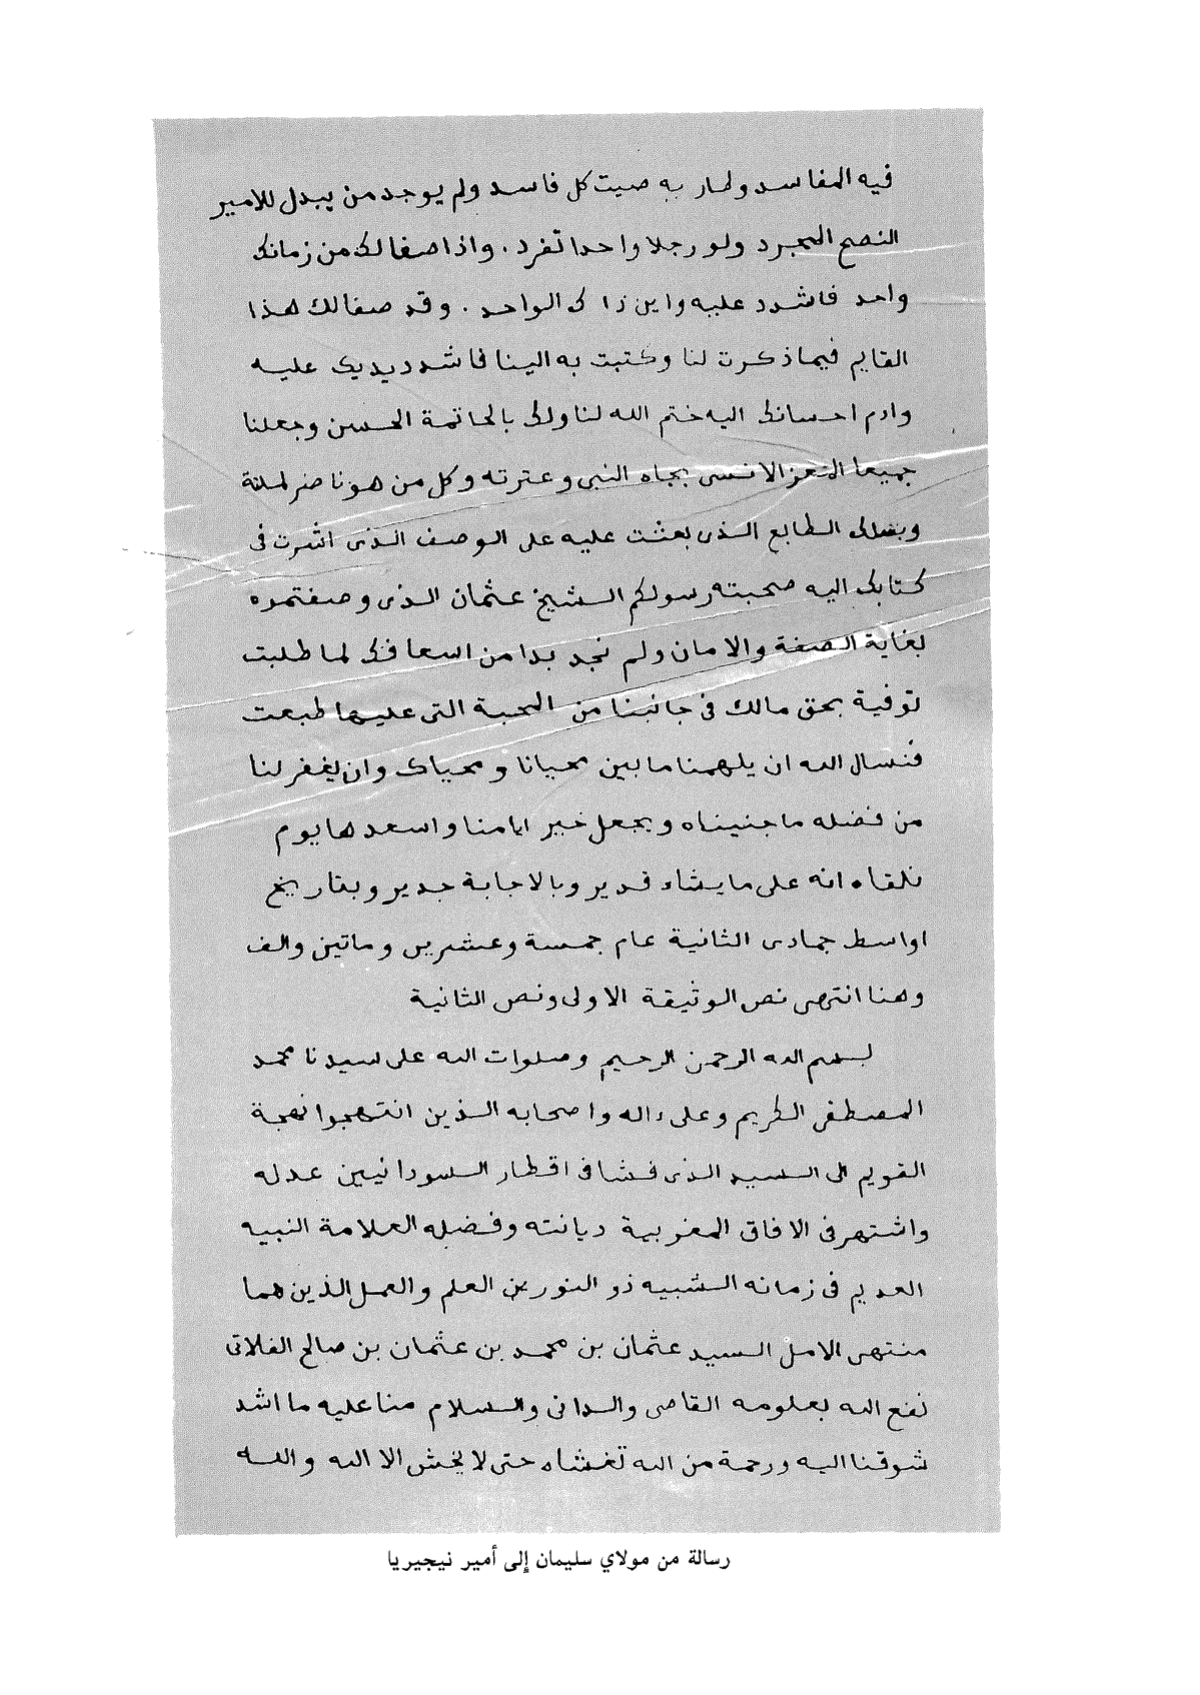 فيه المفاسد وطار به صيت كل فاسد ولم يوجد من يبدل للامير
النصح المجرد ولو رجلا واحدا تفرد . واذا صفا لك من زمانك
واحد فاشدد عليه واين ذاك الواحد . وقد صفا لك هذا
القايم فيما ذكرت لنا وكتبت به الينا فاشدد يديك عليه
وادم احسانك اليه ختم الله لنا ولك بالخاتمة الحسن وجعلنا
جميعا الانسى بجاه النبى وعترته وكل من هو ناصر لملته
الطابع الذى بعثت عليه على الوصف الذى اشرت فى
كتابك اليه صحبته رسولكم الشيخ عثمان الذى وصفتموه
بغاية الصفة والامان ولم نجد بدا من اسعافك لما طلبت
توفية بحق مالك فى جانبنا من المحبة التى عليها طبعت
فنسال الله ان يلهمنا ما بين محيانا ومحياك وان يغفر لنا
من فضله ما جنيناه ويجعل خير ايامنا واسعدها يوم
نلقاه انه على ما يشاء قدير وبالاجابة جدير وبتاريخ
اواسط جمادى الثانية عام خمسة وعشرين وماتين والف
وهنا انتهى نص الوثيقة الاولى ونص الثانية
بسم الله الرحمن الرحيم وصلوات الله على سيدنا محمد
المصطفى الكريم وعلى ءاله واصحابه الذين انتهجوا نهجة
القويم الى السيد الذى فشا فى اقطار السودانيين عدله
واشتهر فى الافاق المغربية ديانته وفضله العلامة النبيه
العديم فى زمانه الشبيه ذو النورين العلم والعمل الذين هما
منتهى الامل السيد عثمان بن محمد بن عثمان بن صالح الفلاتى
نفع الله بعلومه القاصى والدانى والسلام منا عليه ما اشد
شوقنا اليه ورحمة من الله تغشاه حتى لا يخش الا الله والله
رسالة من مولاي سليمان إلى أمير نيجيريا